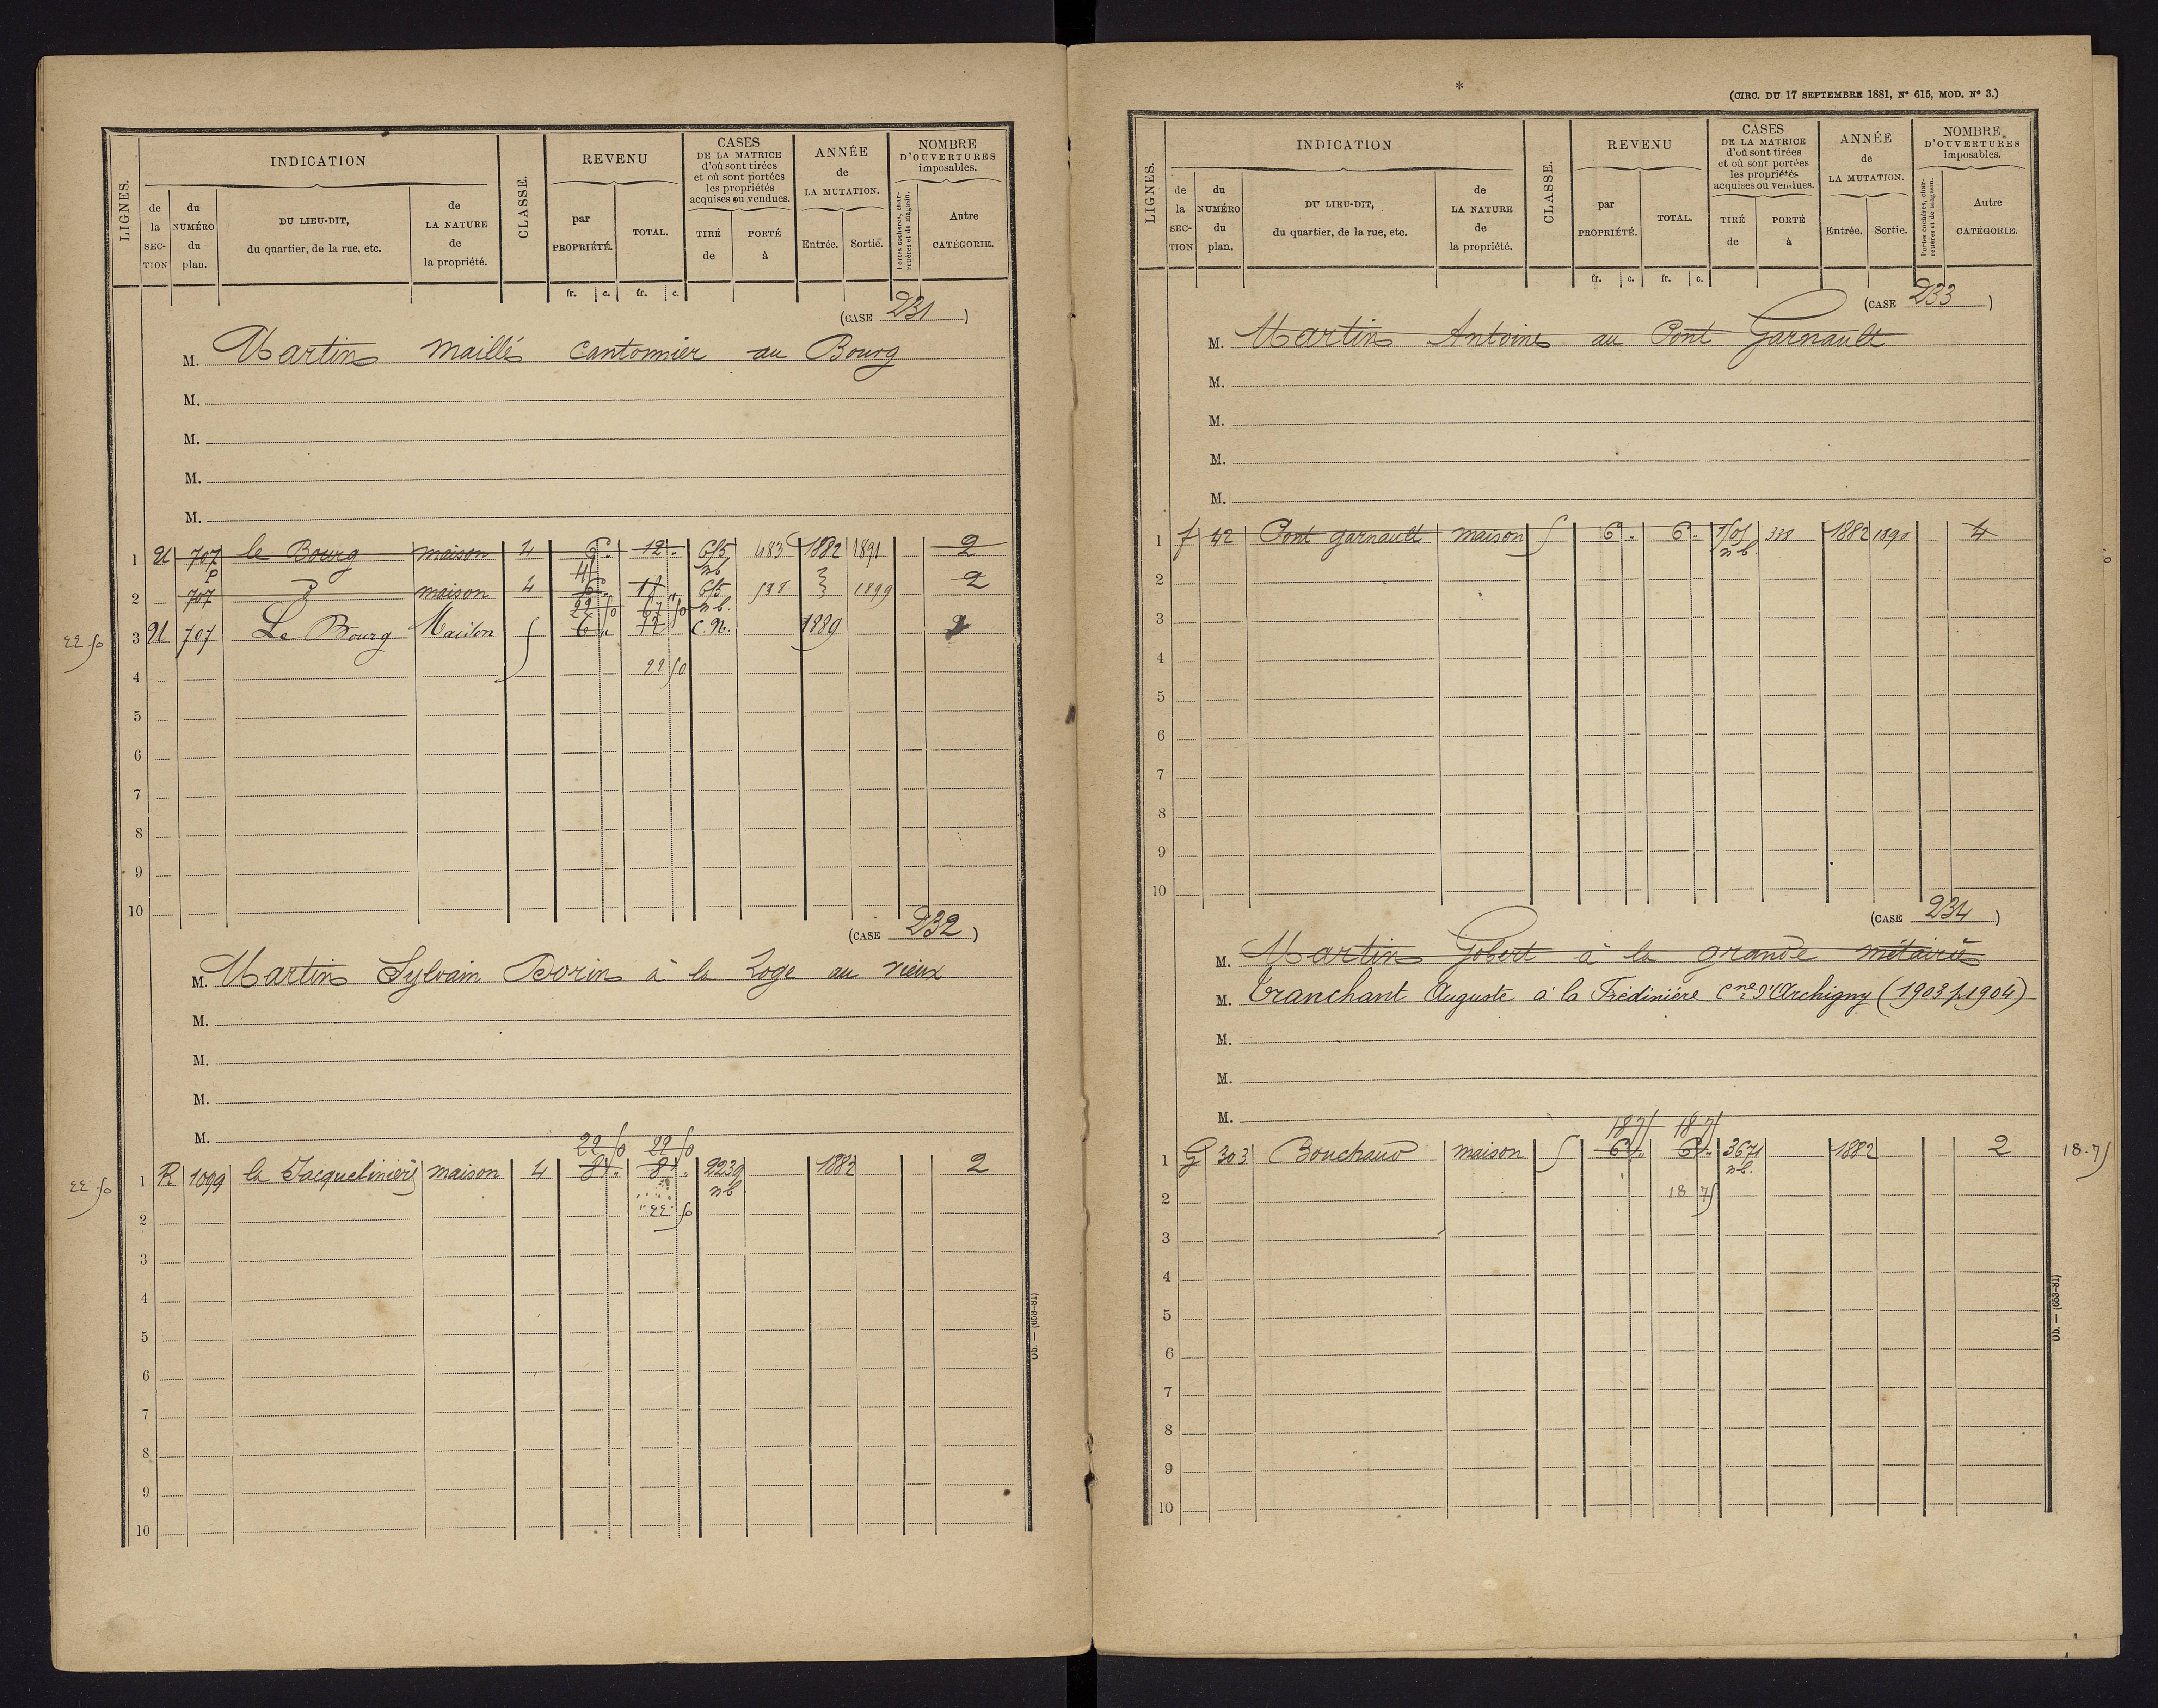 LIGNES.
INDICATION
de la SECTION
du NUMÉRO du plan.
DU LIEU-DIT, du quartier, de la rue, etc.
de LA NATURE de la propriété.
CLASSE.
REVENU
par PROPRIÉTÉ.
TOTAL.
CASES DE LA MATRICE d'où sont tirées et où sont portées les propriétés acquises ou vendues.
TIRÉ de
PORTÉ à
ANNÉE de LA MUTATION.
Entrée.
Sortie.
NOMBRE D'OUVERTURES imposables.
Portes cochères, charretières et de magasin.
Autre CATÉGORIE.
fr. c. fr. c.
(CASE 231)
M. Martin Maillé cantonnier au Bourg
M.
M.
M.
M.
1 707 le Bourg maison 4 6 " 12 " 483 1882 1891 2
2 707 maison 4 538 1899 2
3 707 Le Bourg Maison 5 6 " 12 C.N. 1889 2
22 50
4 22 50
5
6
7
8
9
10
(CASE 232)
M. Martin Sylvain Dorin à la Loge au vieux
M.
M.
M.
M.
22 50 22 50
1 R 1099 la Jacquelinière maison 4 8 " 8 " 2239 nb. 1882 2
22 50
2
3
4
5
6
7
8
9
10
Ob. — (653-81)
*
(CIRC. DU 17 SEPTEMBRE 1881, N° 615, MOD. N° 3.)
LIGNES.
INDICATION
de la SECTION
du NUMÉRO du plan.
DU LIEU-DIT, du quartier, de la rue, etc.
de LA NATURE de la propriété.
CLASSE.
REVENU
par PROPRIÉTÉ.
TOTAL.
CASES DE LA MATRICE d'où sont tirées et où sont portées les propriétés acquises ou vendues.
TIRÉ de
PORTÉ à
ANNÉE de LA MUTATION.
Entrée.
Sortie.
NOMBRE D'OUVERTURES imposables.
Portes cochères, charretières et de magasin.
Autre CATÉGORIE.
fr. c. fr. c.
(CASE 233)
M. Martin Antoine au Pont Garnault
M.
M.
M.
M.
1 f 42 Pont garnault maison 5 6 " 6 " nb. 338 1882 1890 4
2
3
4
5
6
7
8
9
10
(CASE 234)
M. Martin Gobert à la grande métairie
M. Tranchant Auguste à la Frédinière Cne d'Archigny (1903 p 1904)
M.
M.
M.
18 75 18 75
1 G 303 Bouchaud maison 5 6 " 6 " 3671 nb. 1882 2 18.75
2 18 75
3
4
5
6
7
8
9
10
Ob. — (653-81)